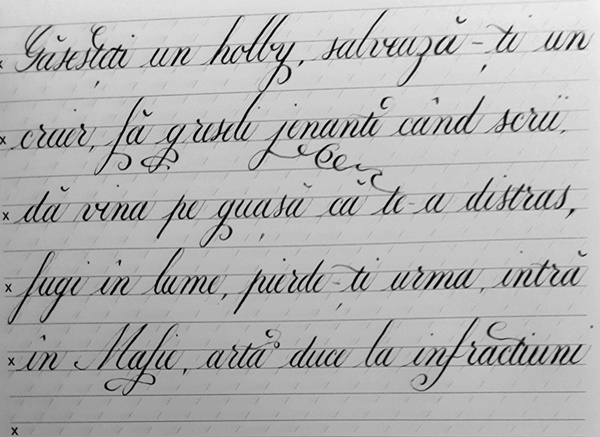 Găsești un holby, salvează-ți un
creier, fă greseli jenante când scrii,
dă vina pe guașă că te-a distras,
fugi în lume, pierde-ți urma, intră
în Mafie, arta duce la infractiuni